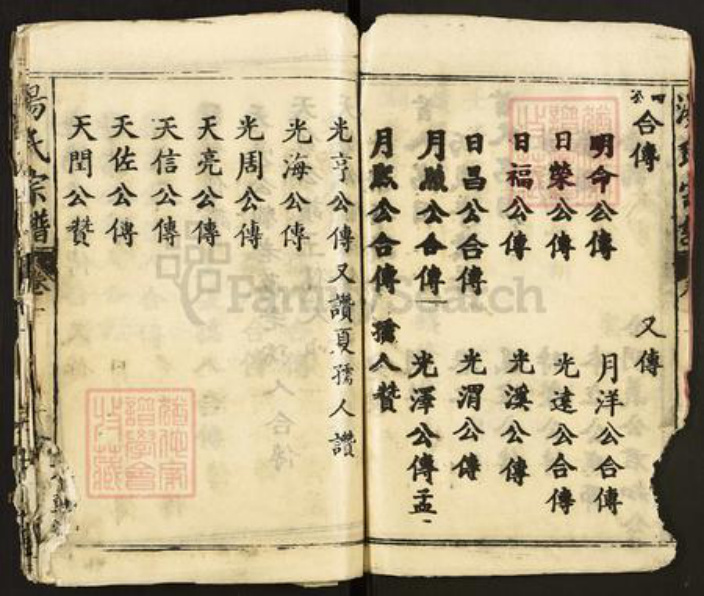 合傳
又傳
明命公傳
月洋公合傳
日榮公傳
光遠公合傳
日福公傳
光溪公傳
日昌公合傳
光渭公傳
月公合傳
光澤公傳孟
月公合傳
孺人贊
光亨公傳又讚夏孺人讚
光海公傳
光周公傳
天亮公傳
天信公傳
天佐公傳
天閏公贊
氏宗譜
卷
FamilySearch